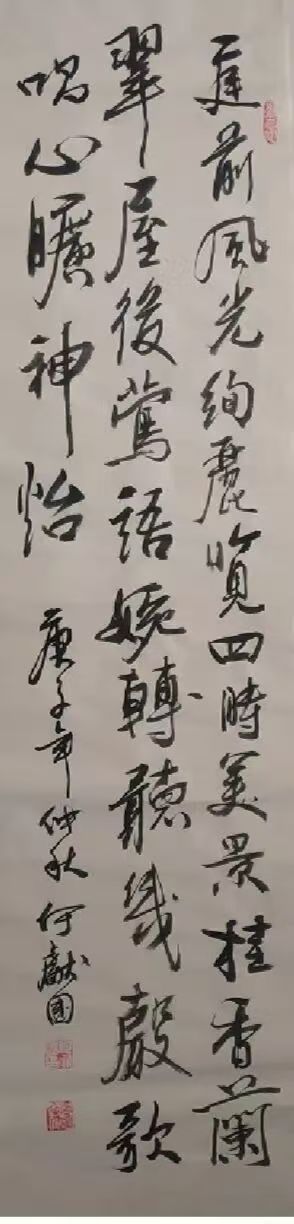 庭前風光絢麗覽四時美景桂香蘭
翠屋後鶯語婉轉聽幾聲歌
唱心曠神怡
庚子年仲秋何獻國